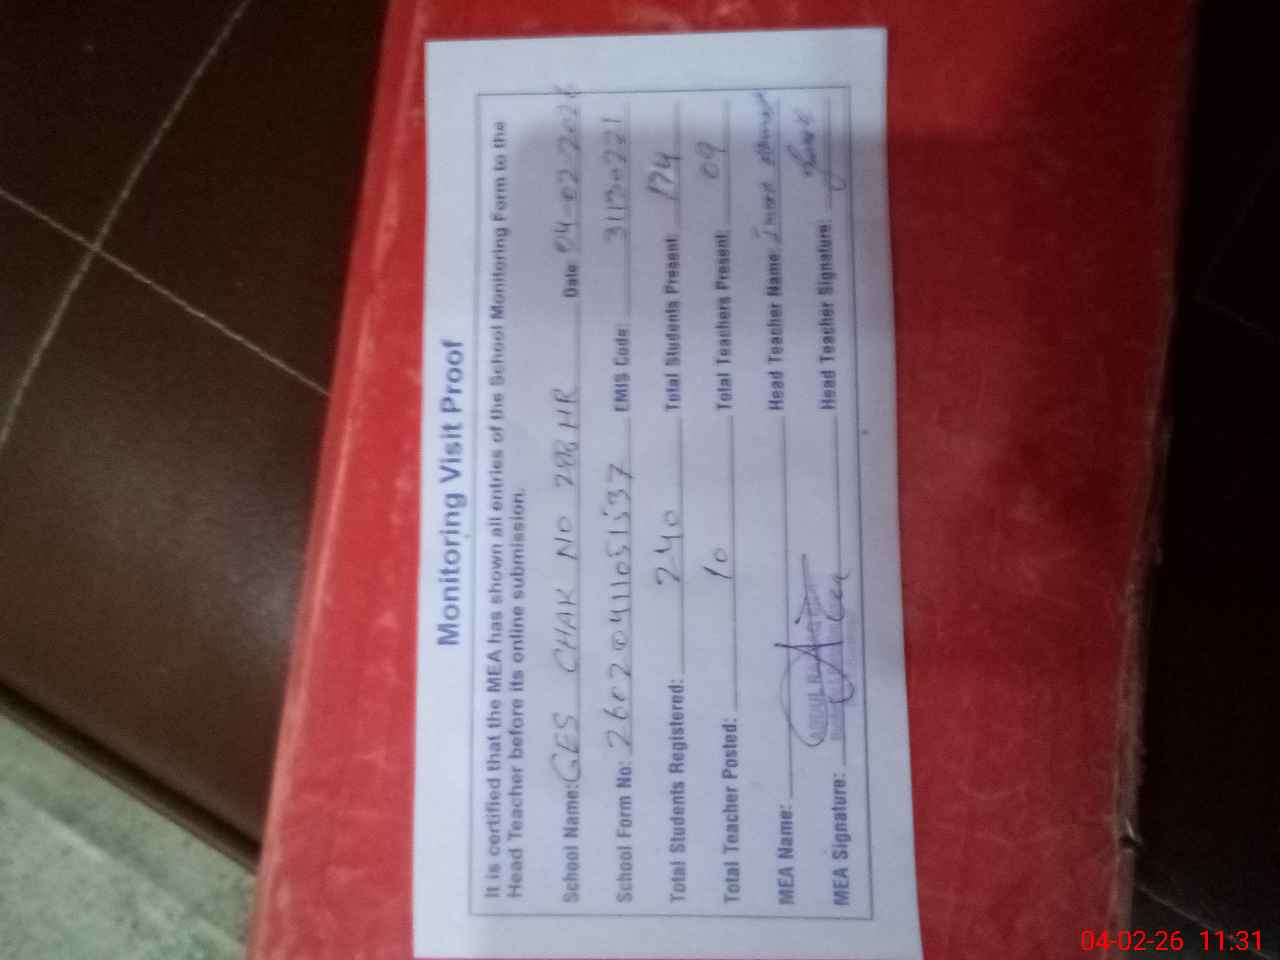 Monitoring Visit Proof
It is certified that the MEA has shown all entries of the School Monitoring Form to the
Head Teacher before its online submission.
School Name: GES CHAK NO 288 HR Date 04-02-2026
School Form No: 26020411051537 EMIS Code: 31130221
Total Students Registered: 240 Total Students Present: 174
Total Teacher Posted: 10 Total Teachers Present: 09
MEA Name: Head Teacher Name:
MEA Signature: Head Teacher Signature:
04-02-26 11:31